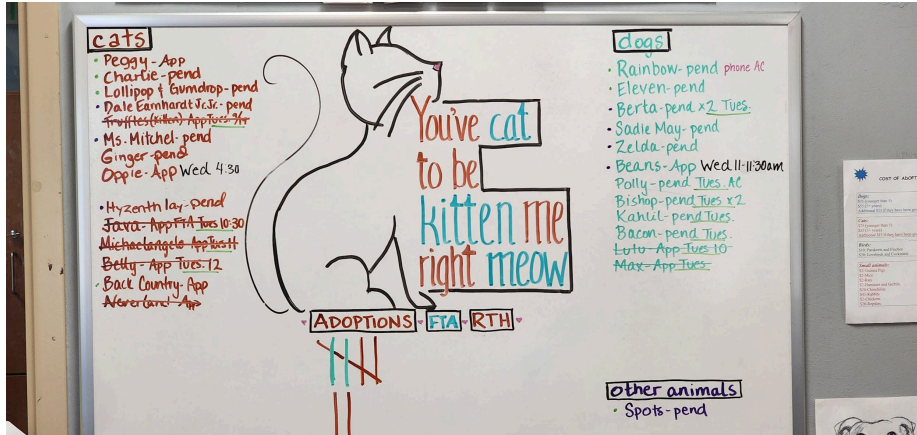 cats
Peggy - App
Charlie - pend
Lollipop & Gumdrop - pend
Dale Earnhardt Jr. Jr. - pend
Truffles (kitten) App Tues
Ms. Mitchel - pend
Ginger - pend
Oppie - App Wed 4.30
Hyzenth lay - pend
Java - App FTA Tues 10:30
Michaelangelo App Tues 11
Betty - App Tues. 12
Back Country - App
Neverland - App
You've cat
to be
kitten me
right meow
ADOPTIONS FTA RTH
dogs
Rainbow - pend phone AC
Eleven - pend
Berta - pend x2 Tues.
Sadie May - pend
Zelda - pend
Beans - App Wed 11-11:30am
Polly - pend Tues. AC
Bishop - pend Tues x2
Kahlil - pend Tues.
Bacon - pend Tues.
Lulu - App Tues 10
Max - App Tues
other animals
Spots - pend
COST OF ADOPT
Dogs:
Cats:
Birds:
Small animals: